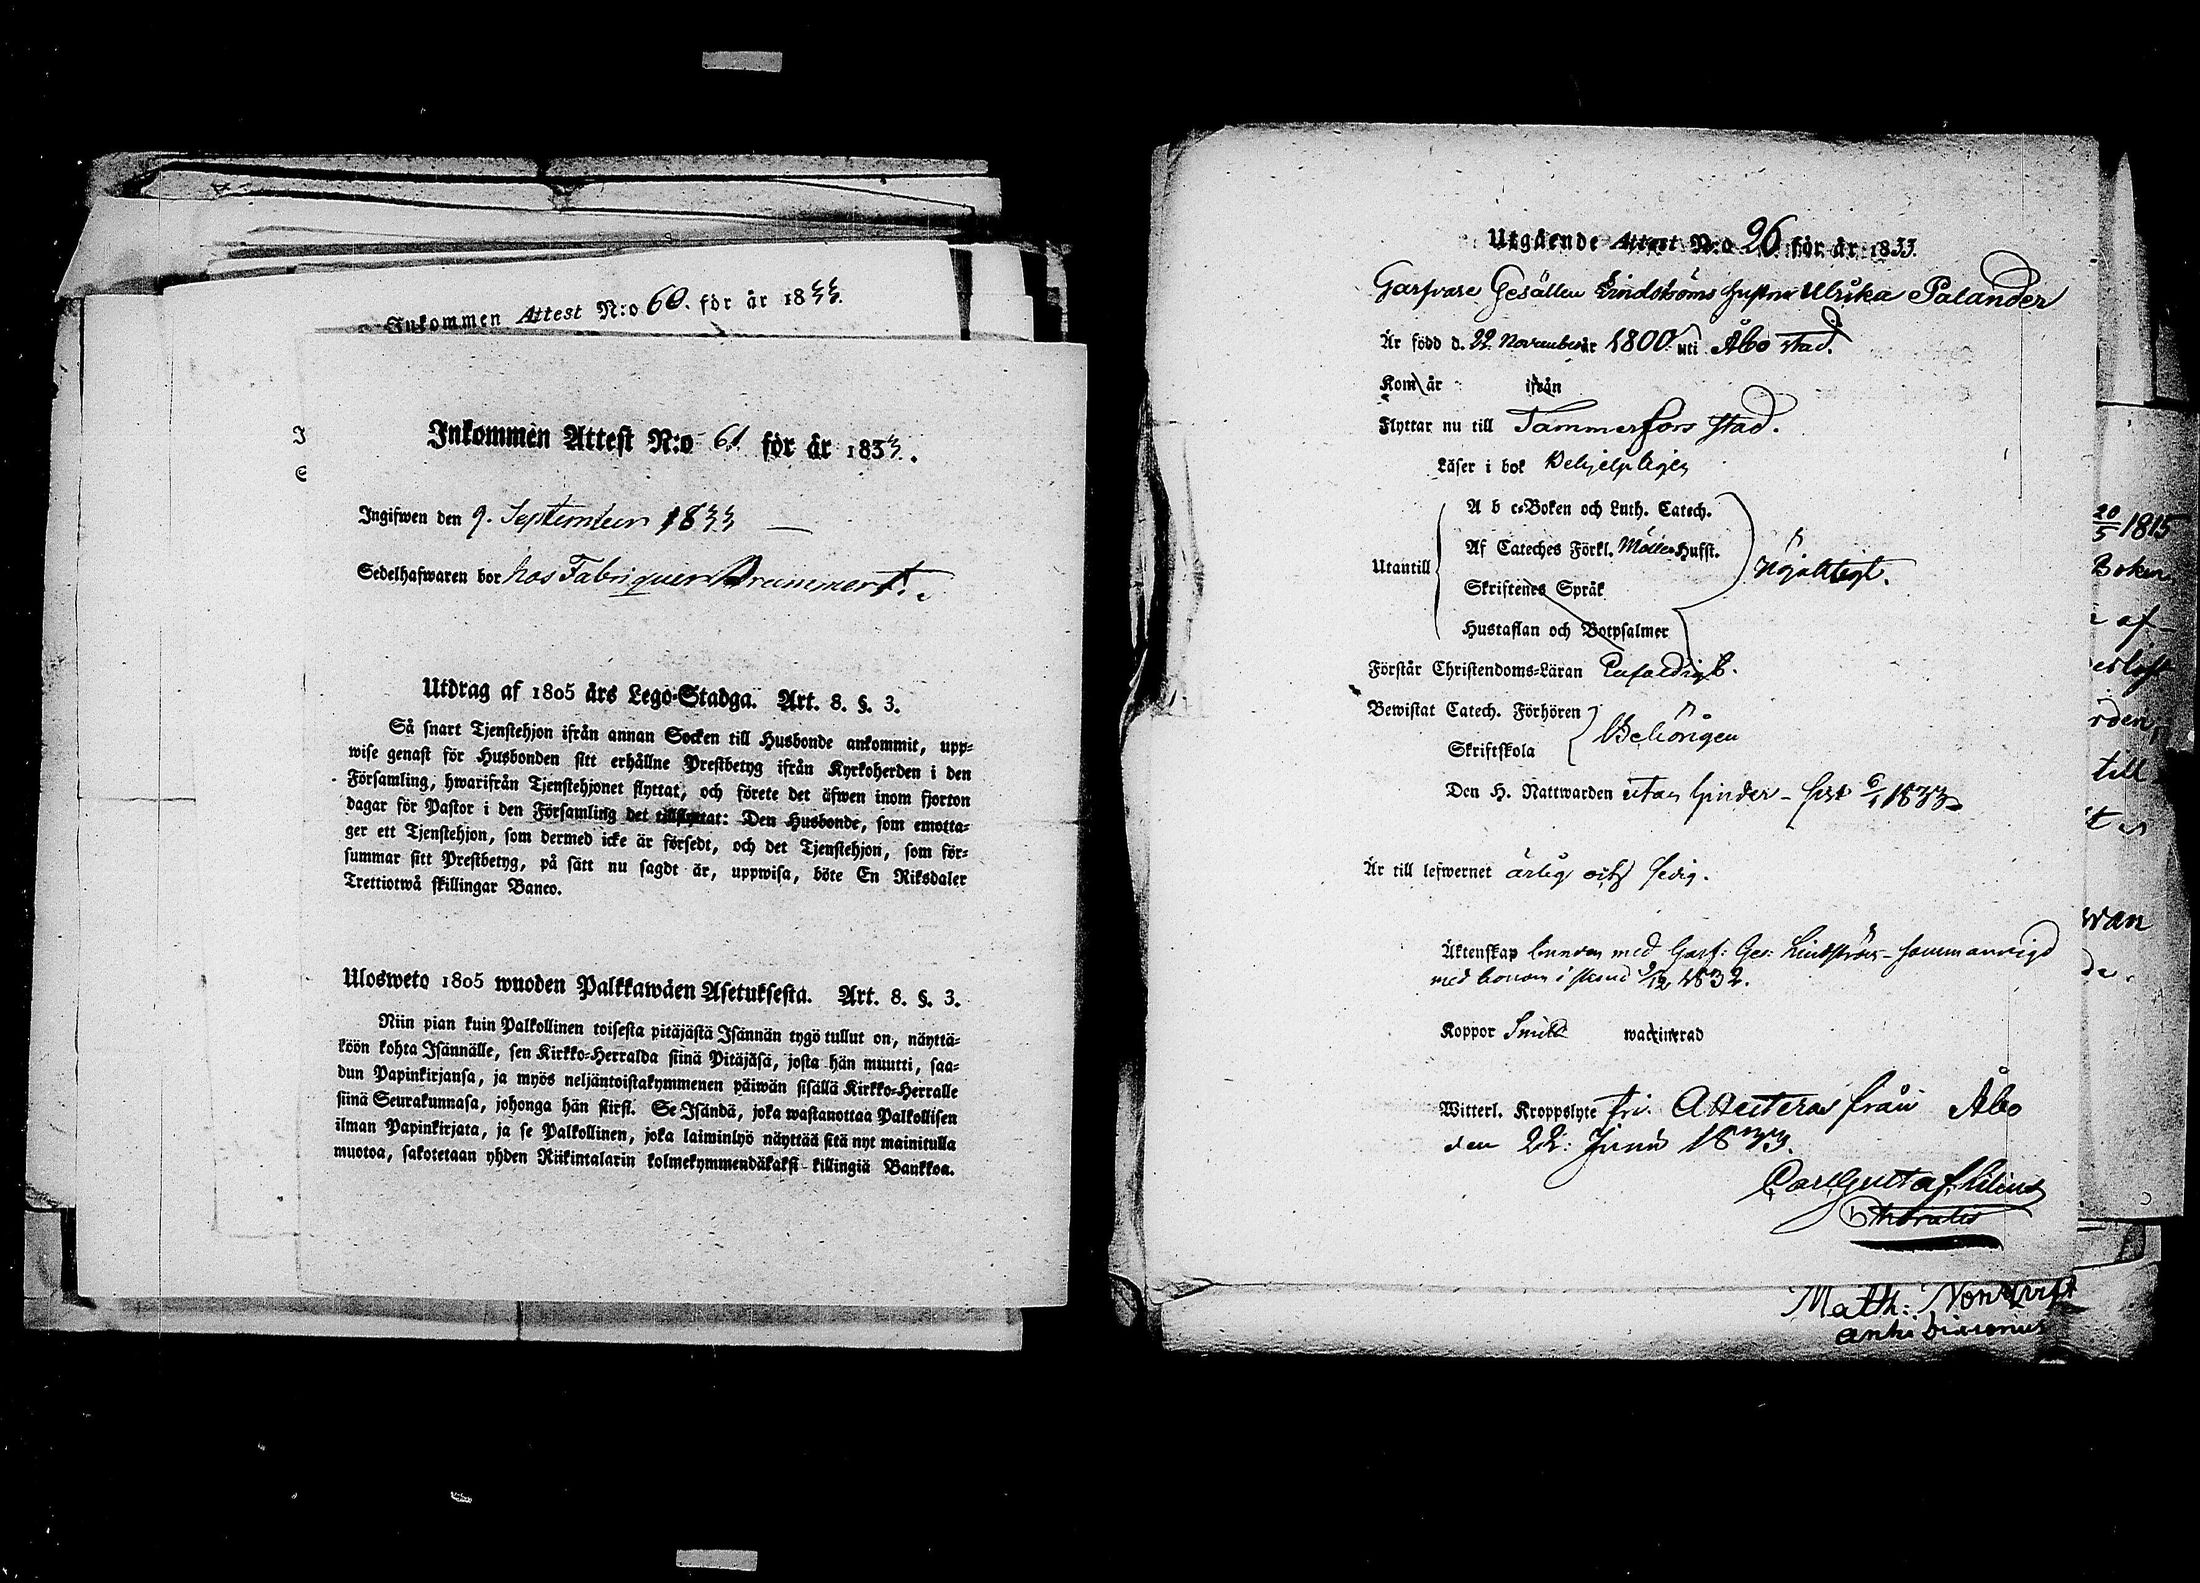 Inkommen Attest N:o 60. för år 1833.
Inkommen Attest N:o 61. för år 1833.
Ingifwen den 9. September 1833
Sedelhafwaren bor hos Fabriqueur Drummert.
Utdrag af 1805 års Lego-Stadga. Art. 8. §. 3.
Så snart Tjenstehjon ifrån annan Socken till Husbonde ankommit, upp-
wise genast för Husbonden sitt erhållne Prestbetyg ifrån Kyrkoherden i den
Församling, hwarifrån Tjenstehjonet flyttat, och förete det äfwen inom fjorton
dagar för Pastor i den Församling det tillflyttat: Den Husbonde, som emotta-
ger ett Tjenstehjon, som dermed icke är försedt, och det Tjenstehjon, som för-
summar sitt Prestbetyg, på sätt nu sagdt är, uppwisa, böte En Riksdaler
Trettiotwå skillingar Banco.
Ulosweto 1805 wuoden Palkkawäen Asetuksesta. Art. 8. §. 3.
Niin pian kuin Palkollinen toisesta pitäjästä Isännän tygö tullut on, näyttä-
köön kohta Isännälle, sen Kirkko-Herralda siinä Pitäjäsä, josta hän muutti, saa-
dun Papinkirjansa, ja myös neljäntoistakymmenen päiwän sisällä Kirkko-Herralle
siinä Seurakunnasa, johonga hän siirsi. Se Isändä, joka wastanottaa Palkollisen
ilman Papinkirjata, ja se Palkollinen, joka laiminlyö näyttää sitä nyt mainitulla
muotoa, sakotetaan yhden Riikintalarin kolmekymmendäkaksi killingiä Bankkoa.
Utgående Attest N:o 26 för år 1833.
Garfvare Gesällen Lindströms hustru Ulrika Palander
Är född d. 22 November år 1800 uti Åbo stad.
Kom år ifrån
Flyttar nu till Tammerfors stad.
Läser i bok Behjelpligen
A b c-Boken och Luth. Catech.
Utantill Af Cateches Förkl. Möllers Hufst. Nöjaktigt.
Skriftenes Språk
Hustaflan och Botpsalmer
Förstår Christendoms-Läran Enfaldigt.
Bewistat Catech. Förhören Behörigen
Skriftskola
Den H. Nattwarden utan hinder - sist 6/1 1833
Är till lefwernet ärlig och sedig.
Äktenskap bunden med Garf: Ges: Lindström - sammanvigd
med honom i 9/12 1832.
Koppor waccinerad
Witterl. Kroppslyte fri. Attesteras från Åbo
den 22: Junii 1833.
Carl Gustaf
Math: Nordqvist
20/5 1815
Boken
af-
rden,
till
wan